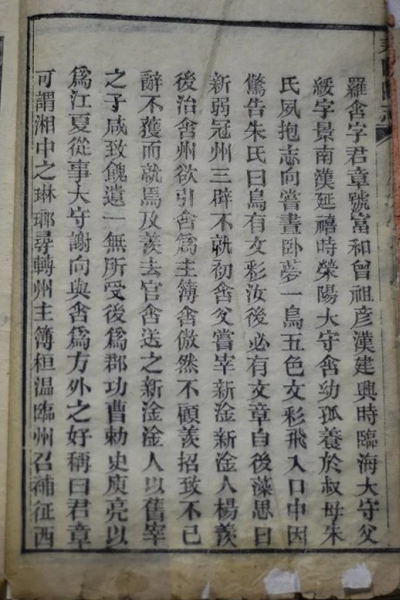 羅含字君章號富和曾祖彦漢建興時臨海大守父
綏字景南漢延禧時滎陽大守含幼孤養於叔母朱
氏夙抱志向嘗晝卧夢一鳥五色文彩飛入口中因
驚告朱氏曰鳥有文彩汝後必有文章自後藻思日
新弱冠州三辟不就初含父嘗宰新淦新淦人楊羨
後治含州欲引含爲主簿含傲然不顧羨招致不已
辭不獲而就焉及羨去官含送之新淦淦人以舊宰
之子咸致餽遺一無所受後爲郡功曹勑史庾亮以
爲江夏從事大守謝向與含爲方外之好稱曰君章
可謂湘中之琳瑯尋轉州主簿桓温臨州召補征西